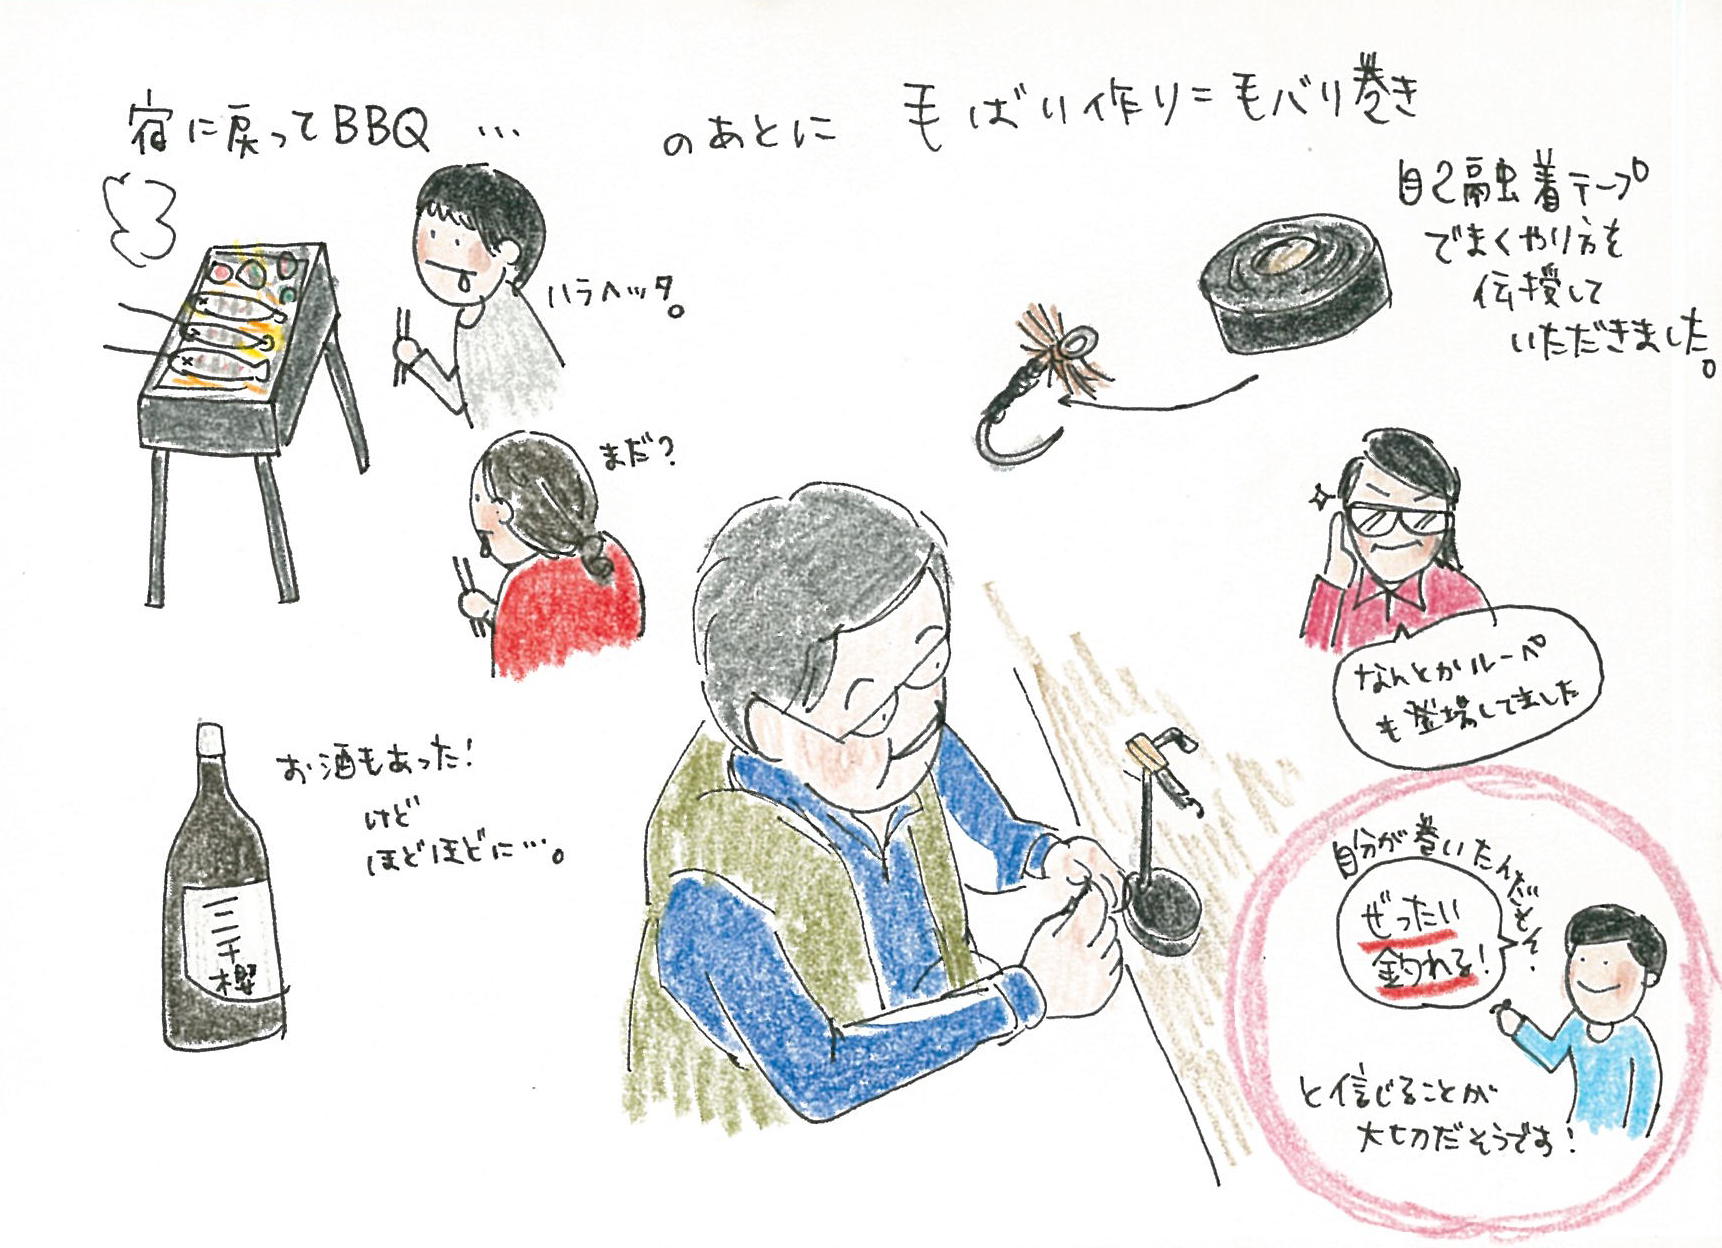 宿に戻ってBBQ …
のあとに
毛ばり作り=毛バリ巻き
ハラヘッタ。
まだ?
お酒もあった!
けど
ほどほどに…。
三千櫻
自己融着テープ
でまくやり方を
伝授して
いただきました。
なんとかルーペ
も登場してました
自分が巻いたんだぞ。
ぜったい
釣れる!
と信じることが
大切だそうです!